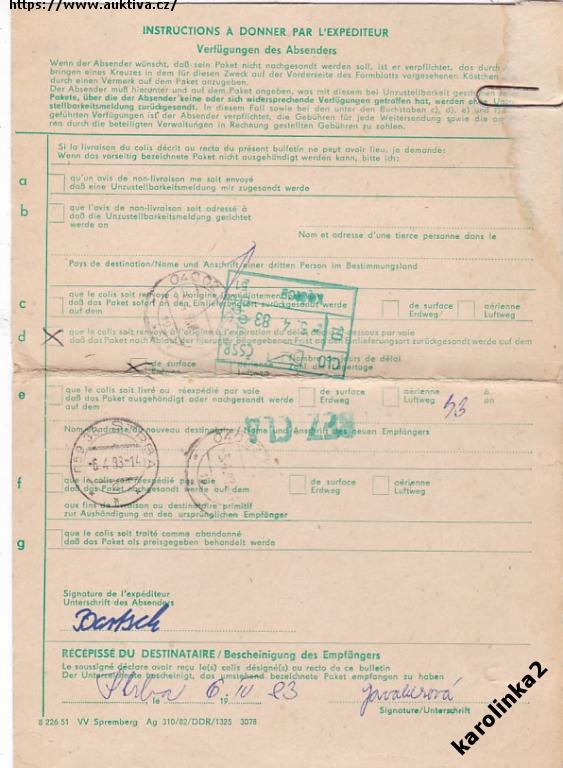 https://www.auktiva.cz/
INSTRUCTIONS A DONNER PAR L'EXPÉDITEUR
Verfügungen des Absenders
Wenn der Absender wünscht, daß sein Paket nicht nachgesandt werden soll, ist er verpflichtet, das durch
bringen eines Kreuzes in dem für diesen Zweck auf der Vorderseite des Formblatts vorgesehenen Kästchen
durch einen Vermerk auf dem Paket anzugeben.
Der Absender muß hierunter und auf dem Paket angeben, was mit diesem bei Unzustellbarkeit geschehen
Pakete, über die der Absender keine oder sich widersprechende Verfügungen getroffen hat, werden ohne Un
stellbarkeitsmeldung zurückgesandt. In diesem Fall sowie bei den unter den Buchstaben c), d), e) und
geführten Verfügungen ist der Absender verpflichtet, die Gebühren für jede Weitersendung sowie die
ren durch die beteiligten Verwaltungen in Rechnung gestellten Gebühren zu zahlen.
Si la livraison du colis décrit au recto du présent bulletin ne peut avoir lieu, je demande:
Wenn das vorseitig bezeichnete Paket nicht ausgehändigt werden kann, bitte ich:
a
qu'un avis de non-livraison me soit envoyé
daß eine Unzustellbarkeitsmeldung mir zugesandt werde
b
que l'avis de non-livraison soit adressé à
daß die Unzustellbarkeitsmeldung gerichtet
werde an
Nom et adresse d'une tierce personne dans le
Pays de destination/Name und Anschrift einer dritten Person im Bestimmungsland
c
que le colis soit renvoyé à l'origine immédiatement
daß das Paket sofort an den Einlieferungsort zurückgesandt werde
auf dem
de surface
Erdweg
aérienne
Luftweg
d
que le colis soit renvoyé à l'origine à l'expiration du délai ci-dessous par voie
daß das Paket nach Ablauf der hierunter angegebenen Frist an den Einlieferungsort zurückgesandt werde auf dem
de surface
aérienne
Nombre de jours de délai
Zahl der Lagertage
e
que le colis soit livré ou réexpédié par voie
daß das Paket ausgehändigt oder nachgesandt werde
auf dem
de surface
Erdweg
aérienne
Luftweg
à
an
Nom et adresse du nouveau destinataire/Name und Anschrift des neuen Empfängers
827 CLO
ŠTRBA
-6.4.83-14
059 38
f
que le colis soit réexpédié par voie
daß das Paket nachgesandt werde auf dem
de surface
Erdweg
aérienne
Luftweg
aux fins de livraison au destinataire primitif
zur Aushändigung an den ursprünglichen Empfänger
g
que le colis soit traité comme abandonné
daß das Paket als preisgegeben behandelt werde
Signature de l'expéditeur
Unterschrift des Absenders
Bartsch
RÉCÉPISSÉ DU DESTINATAIRE / Bescheinigung des Empfängers
Le soussigné déclare avoir reçu le(s) colis désigné(s) au recto de ce bulletin
Der Unterzeichnete bescheinigt, das umstehend bezeichnete Paket empfangen zu haben
Štrba le 6. IV 19 83
Signature/Unterschrift
8 226 51 VV Spremberg Ag 310/82/DDR/1325 3078
karolinka2